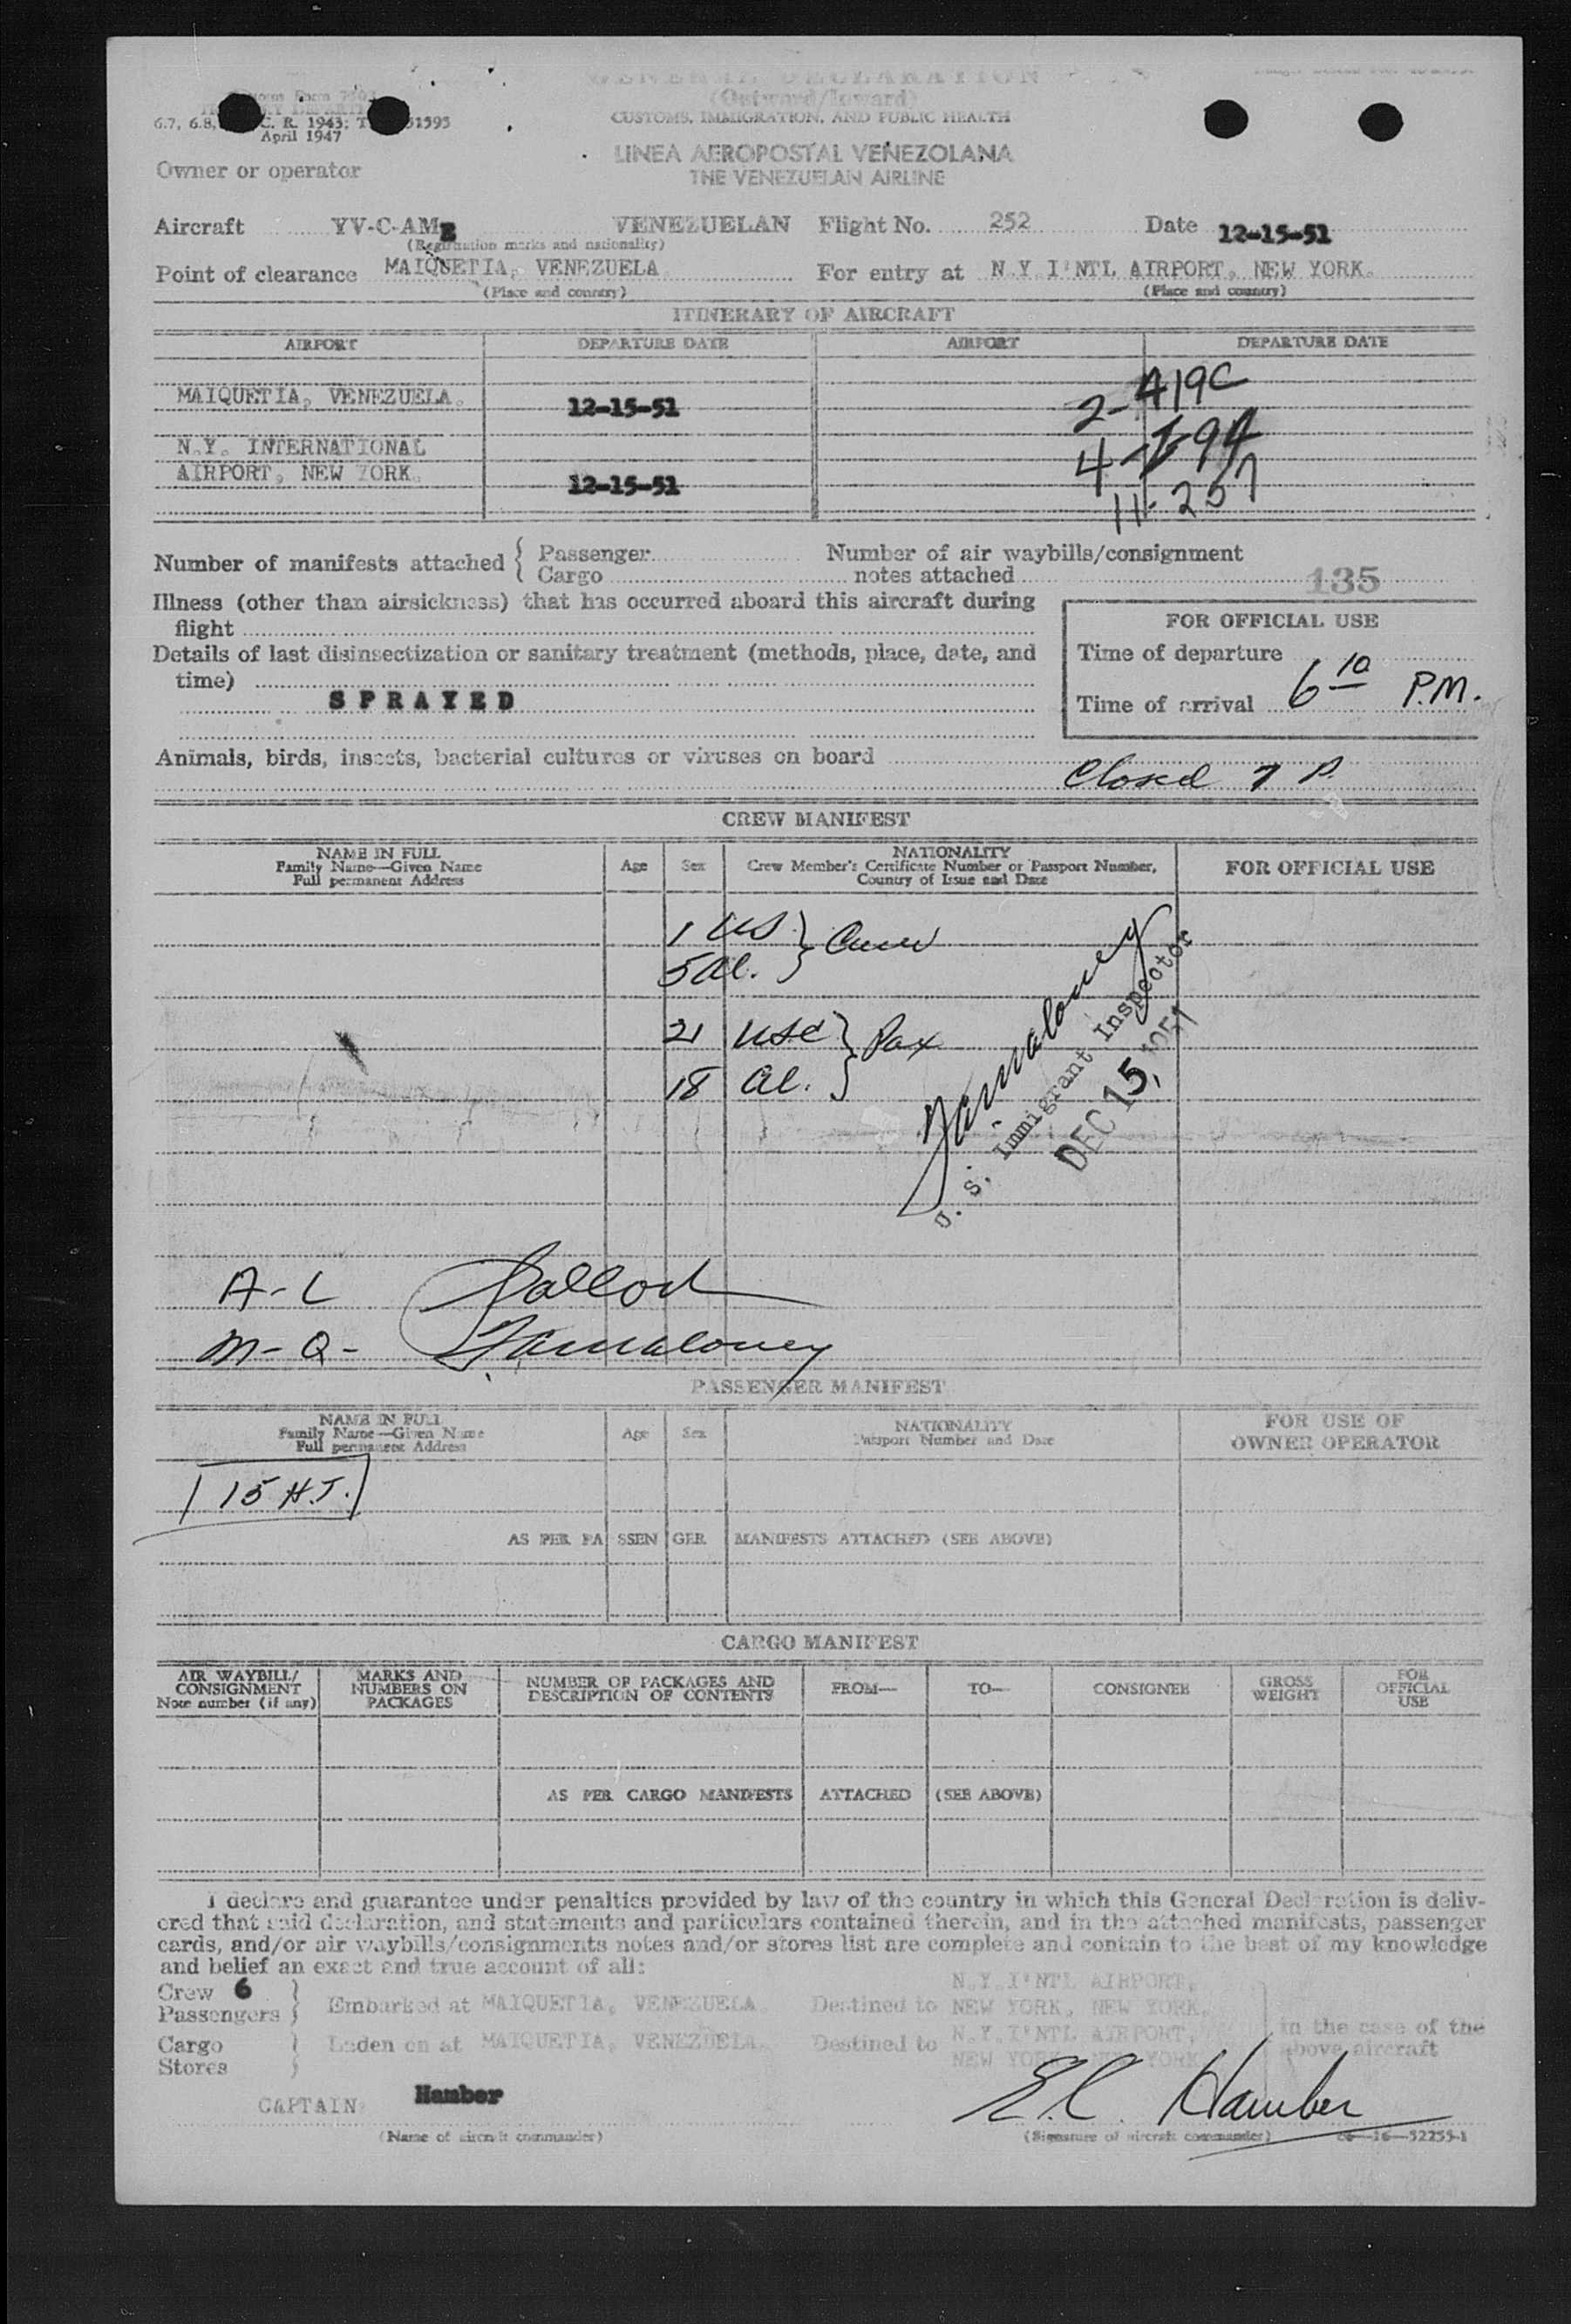 GENERAL DECLARATION
(Outward/Inward)
CUSTOMS, IMMIGRATION, AND PUBLIC HEALTH
Customs Form
6.7, 6.8, C. R. 1943; 51595
April 1947
LINEA AEROPOSTAL VENEZOLANA
THE VENEZUELAN AIRLINE
Owner or operator
Aircraft YV-C-AME VENEZUELAN Flight No. 252 Date 12-15-51
(Registration marks and nationality)
Point of clearance MAIQUETIA, VENEZUELA For entry at N.Y.I'NTL AIRPORT, NEW YORK.
(Place and country) (Place and country)
ITINERARY OF AIRCRAFT
AIRPORT DEPARTURE DATE AIRPORT DEPARTURE DATE
2-A19C
MAIQUETIA, VENEZUELA. 12-15-51
N.Y. INTERNATIONAL
AIRPORT, NEW YORK. 12-15-51
11-257
Number of manifests attached { Passenger Number of air waybills/consignment
Cargo notes attached
135
Illness (other than airsickness) that has occurred aboard this aircraft during
flight
FOR OFFICIAL USE
Details of last disinsectization or sanitary treatment (methods, place, date, and
time)
Time of departure
SPRAYED
Time of arrival 6 10 P.M.
Animals, birds, insects, bacterial cultures or viruses on board
Closed 7 P.
CREW MANIFEST
NAME IN FULL
Family Name—Given Name
Full permanent Address
Age
Sex
NATIONALITY
Crew Member's Certificate Number or Passport Number,
Country of Issue and Date
FOR OFFICIAL USE
1 US } Crew
5 al.
21 USC } Pax
18 al.
U. S. Immigrant Inspector
DEC 15, 1951
A-L
M-Q-
PASSENGER MANIFEST
NAME IN FULL
Family Name—Given Name
Full permanent Address
Age
Sex
NATIONALITY
Passport Number and Date
FOR USE OF
OWNER OPERATOR
15 H.J.
AS PER PASSENGER MANIFESTS ATTACHED (SEE ABOVE)
CARGO MANIFEST
AIR WAYBILL/
CONSIGNMENT
Note number (if any)
MARKS AND
NUMBERS ON
PACKAGES
NUMBER OF PACKAGES AND
DESCRIPTION OF CONTENTS
FROM—
TO—
CONSIGNEE
GROSS
WEIGHT
FOR
OFFICIAL
USE
AS PER CARGO MANIFESTS ATTACHED (SEE ABOVE)
I declare and guarantee under penalties provided by law of the country in which this General Declaration is deliv-
ered that said declaration, and statements and particulars contained therein, and in the attached manifests, passenger
cards, and/or air waybills/consignments notes and/or stores list are complete and contain to the best of my knowledge
and belief an exact and true account of all:
Crew 6
Passengers } Embarked at MAIQUETIA, VENEZUELA. Destined to N.Y.I'NTL AIRPORT,
NEW YORK, NEW YORK.
Cargo
Stores } Laden on at MAIQUETIA, VENEZUELA. Destined to N.Y.I'NTL AIRPORT,
NEW YORK, NEW YORK
in the case of the
above aircraft
CAPTAIN Hamber
E.C. Hamber
(Name of aircraft commander) (Signature of aircraft commander) c6—16—52255-1